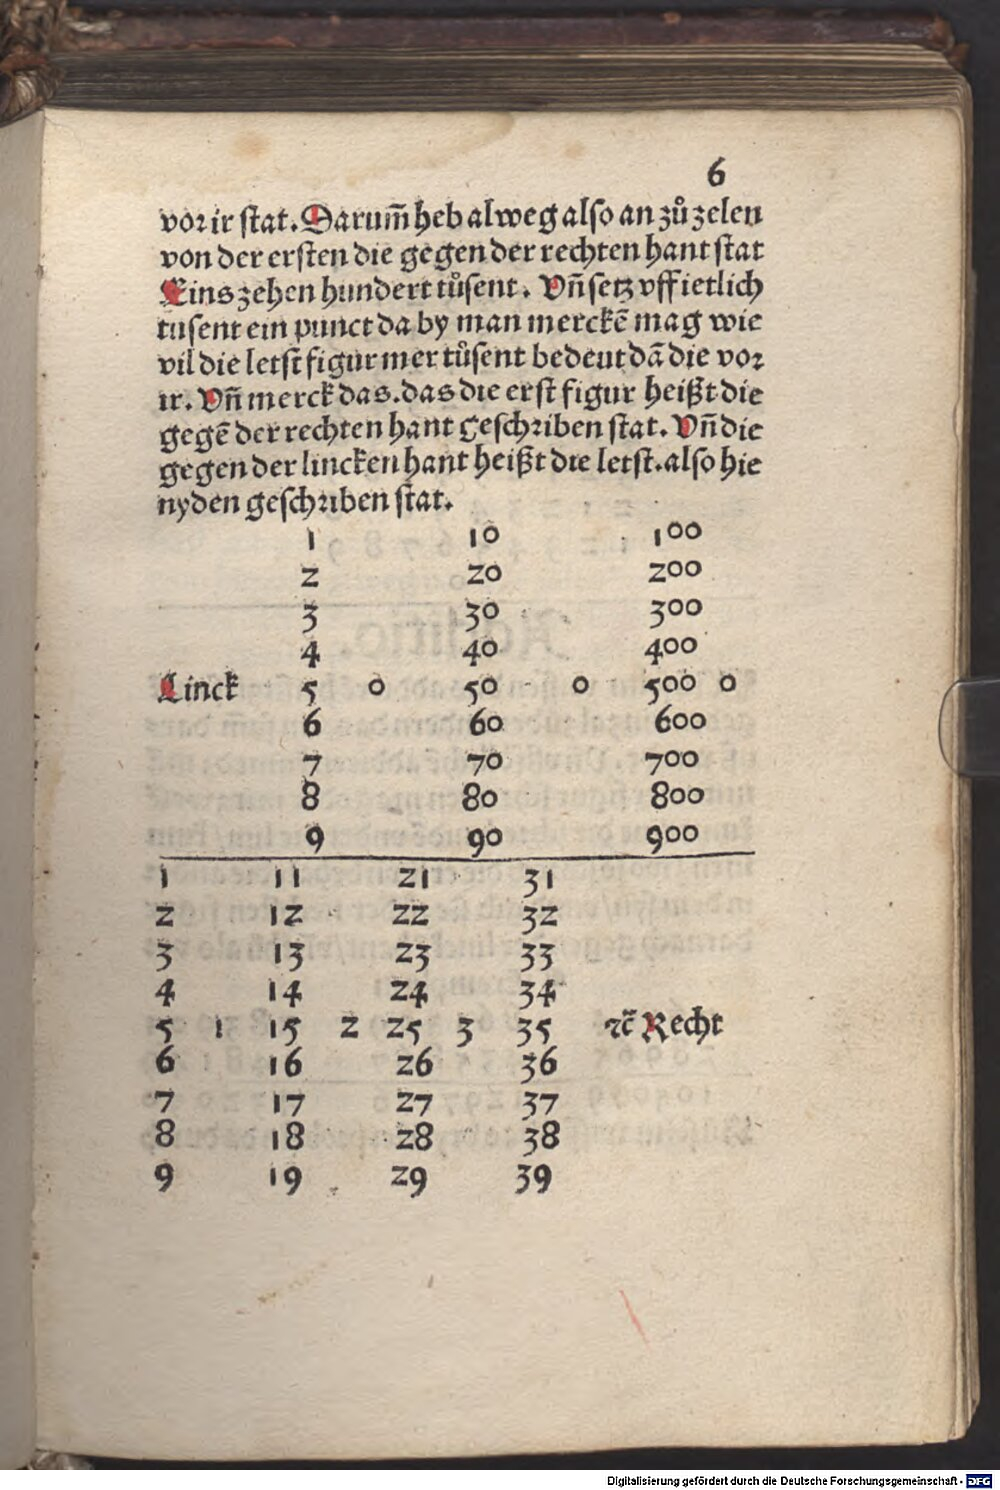 6
vor ir stat. Darum̃ heb alweg also an zů zelen
von der ersten die gegen der rechten hant stat
Eins zehen hundert tůsent. Vñ setz vff ietlich
tusent ein punct da by man merckẽ mag wie
vil die letst figur mer tůsent bedeut dã die vor
ir. Vñ merck das. das die erst figur heißt die
gegẽ der rechten hant geschriben stat. Vñ die
gegen der lincken hant heißt die letst. also hie
nyden geschriben stat.
1 10 100
2 20 200
3 30 300
4 40 400
Linck 5 0 50 0 500 0
6 60 600
7 70 700
8 80 800
9 90 900
1 11 21 31
2 12 22 32
3 13 23 33
4 14 24 34
5 1 15 2 25 3 35 ⁊c̃ Recht
6 16 26 36
7 17 27 37
8 18 28 38
9 19 29 39
Digitalisierung gefördert durch die Deutsche Forschungsgemeinschaft - DFG